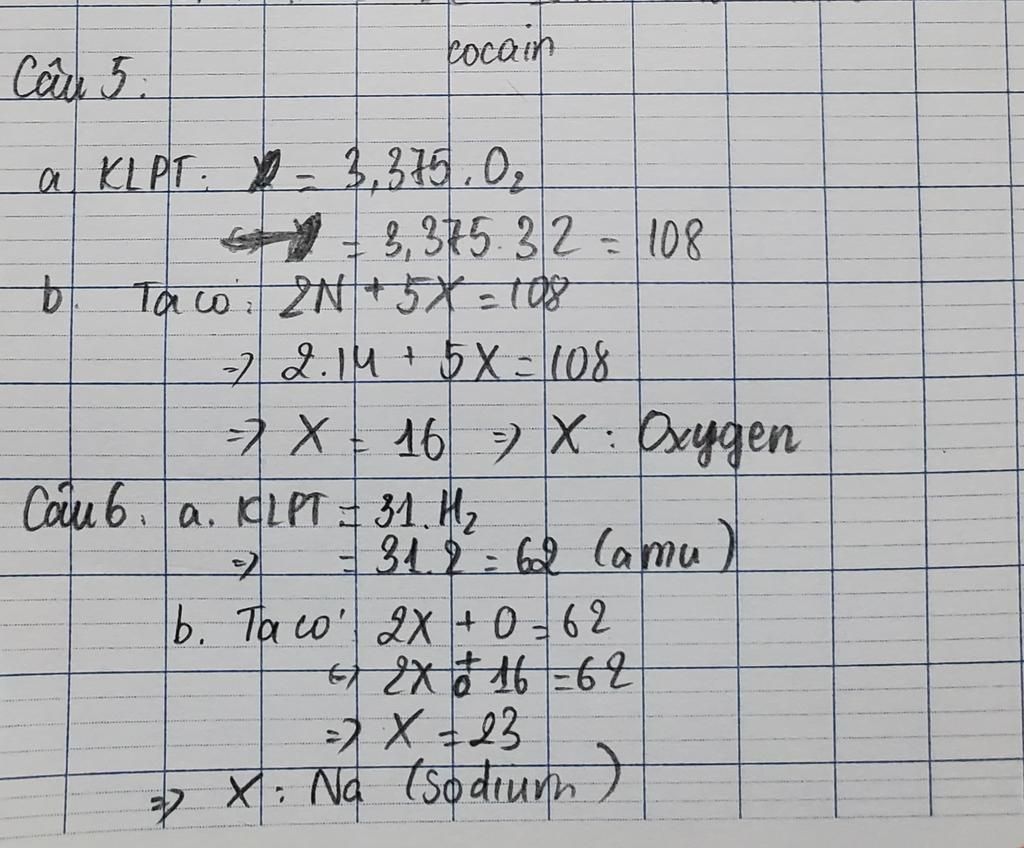 cocain
Câu 5:
a KLPT: = 3,375.O₂
= 3,375.32 = 108
b. Ta có: 2N + 5X = 108
=> 2.14 + 5X = 108
=> X = 16 => X : Oxygen
Câu 6. a. KLPT = 31.H₂
=> = 31.2 = 62 (amu)
b. Ta có: 2X + O = 62
<=> 2X + 16 = 62
=> X = 23
=> X : Na (sodium)